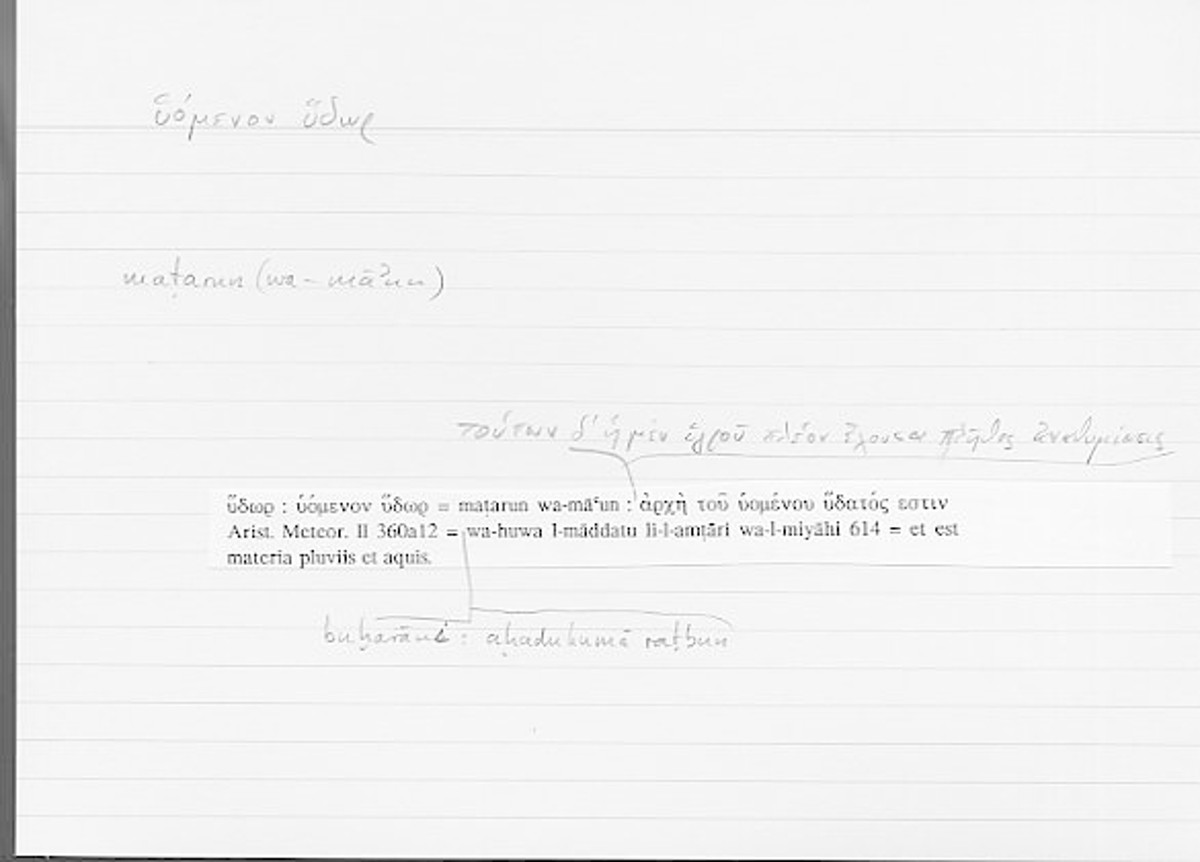 ὑόμενον ὕδωρ
maṭarun (wa-māʾun)
τούτων δ' ἡ μὲν ὑγροῦ πλέον ἔχουσα πλῆθος ἀναθυμίασις
ὕδωρ : ὑόμενον ὕδωρ = maṭarun wa-māʿun : ἀρχὴ τοῦ ὑομένου ὕδατός εστιν
Arist. Meteor. II 360a12 = wa-huwa l-māddatu li-l-amṭāri wa-l-miyāhi 614 = et est
materia pluviis et aquis.
buḫarāni : aḥaduhumā raṭbun